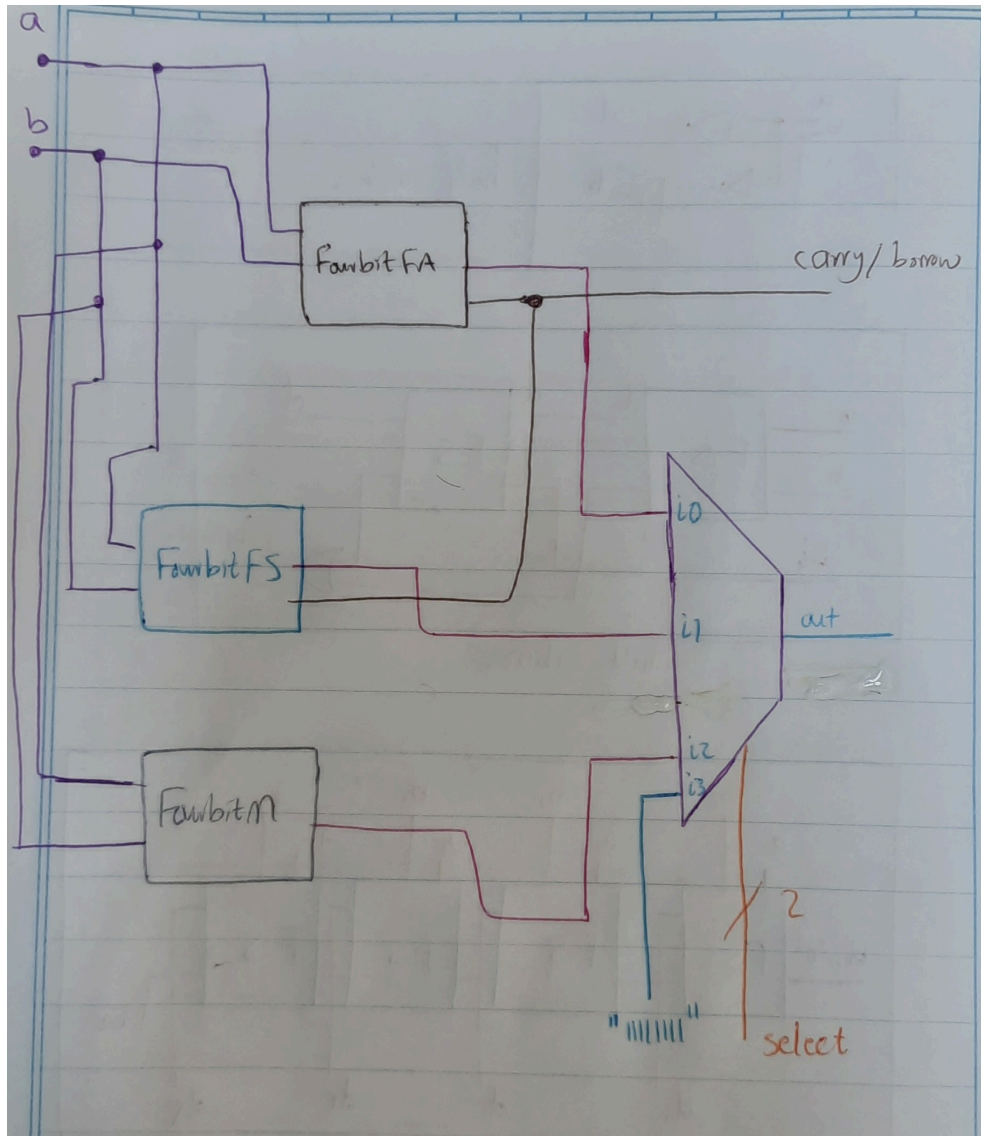 a
b
Fourbit FA
carry/borrow
i0
Fourbit FS
i1
out
i2
i3
Fourbit M
2
"11111111"
select